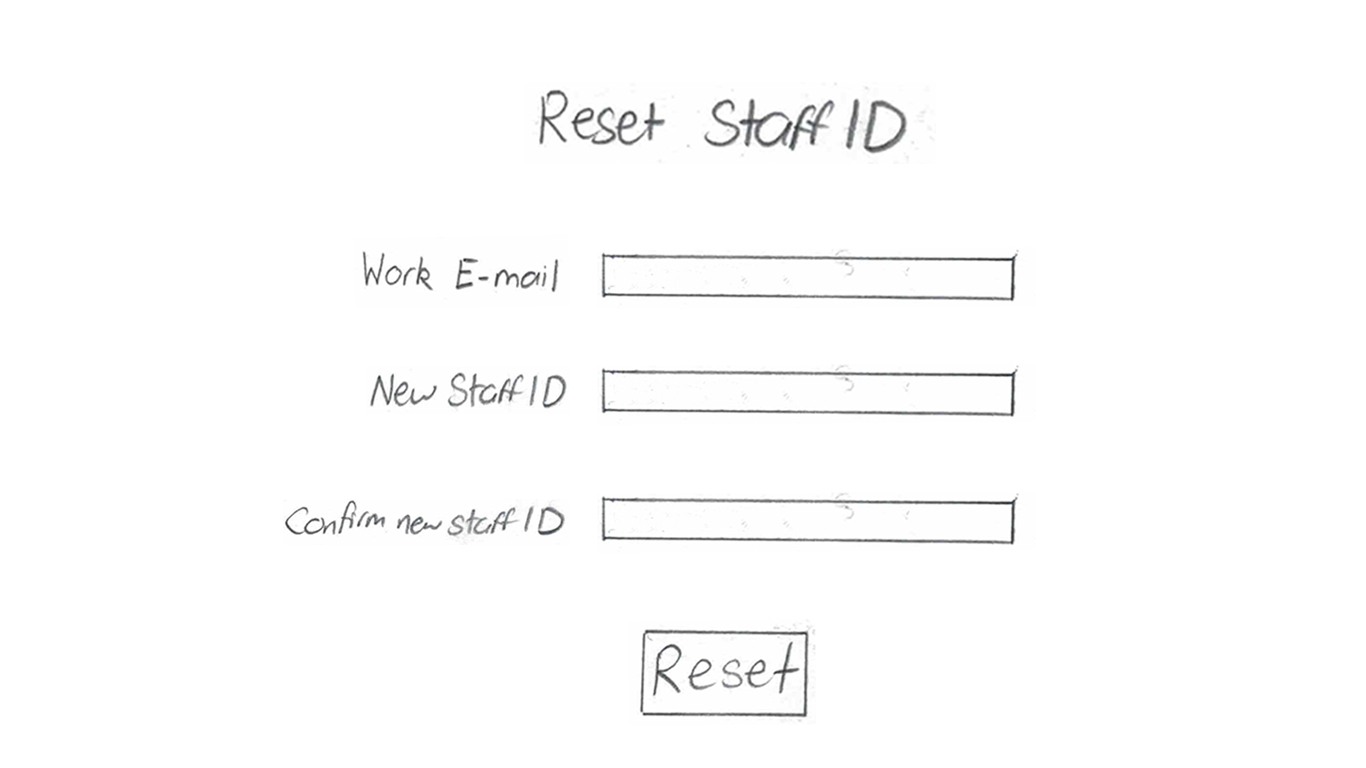 Reset Staff ID
Work E-mail
New Staff ID
Confirm new staff ID
Reset